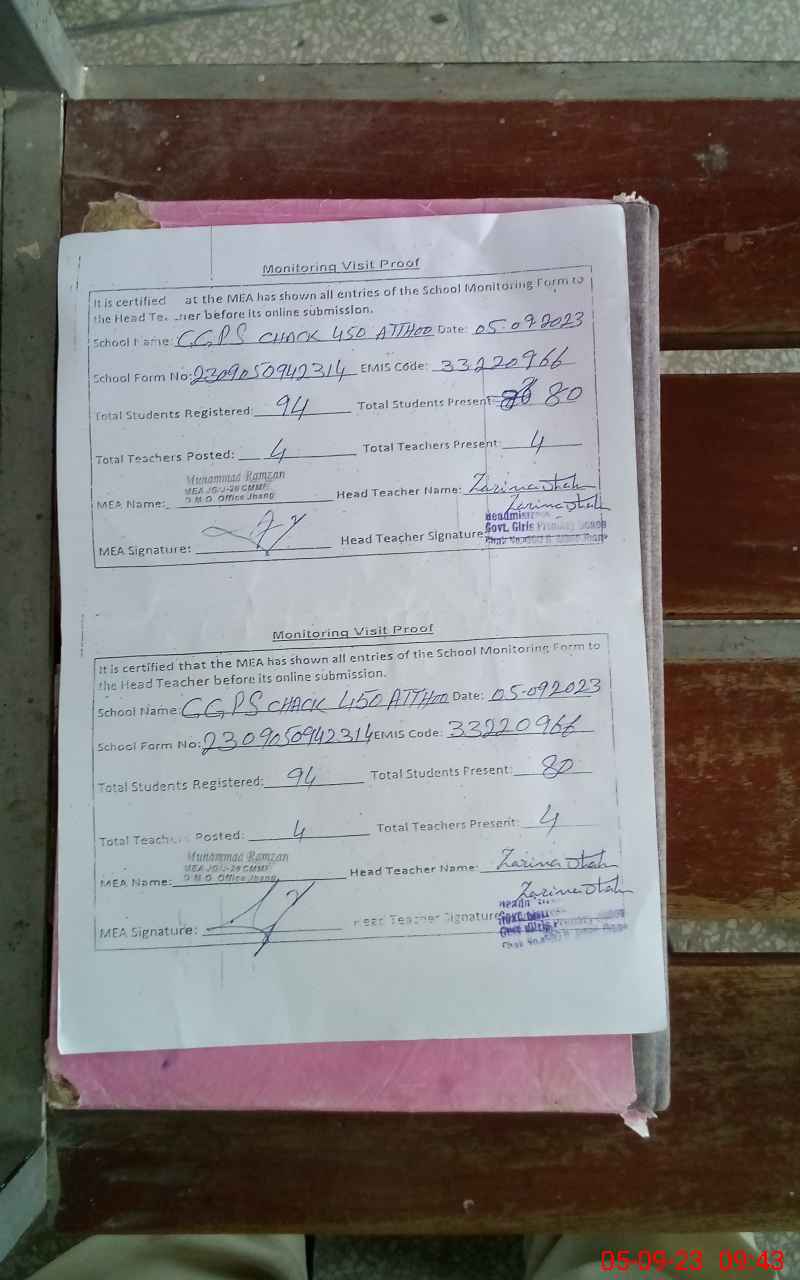 Monitoring Visit Proof
It is certified at the MEA has shown all entries of the School Monitoring Form to
the Head Te before its online submission.
School Name: GGPS CHACK 450 ATTHOO Date: 05.09.2023
School Form No: 2309050942314 EMIS Code: 33220966
Total Students Registered: 94 Total Students Present: 80
Total Teachers Posted: 4 Total Teachers Present: 4
Muhammad Ramzan
MEA JG/J-26 CMMF
D.M.O. Office Jhang
MEA Name: Head Teacher Name: Zarina
Zarina
Headmistress
Govt. Girls Primary
MEA Signature: Head Teacher Signature:
Monitoring Visit Proof
It is certified that the MEA has shown all entries of the School Monitoring Form to
the Head Teacher before its online submission.
School Name: GGPS CHACK 450 ATTHOO Date: 05.09.2023
School Form No: 2309050942314 EMIS Code: 33220966
Total Students Registered: 94 Total Students Present: 80
Total Teachers Posted: 4 Total Teachers Present: 4
Muhammad Ramzan
MEA JG/J-26 CMMF
D.M.O. Office Jhang
MEA Name: Head Teacher Name: Zarina
Zarina
MEA Signature: Head Teacher Signature:
Govt. Girls Primary
05-09-23 09:43